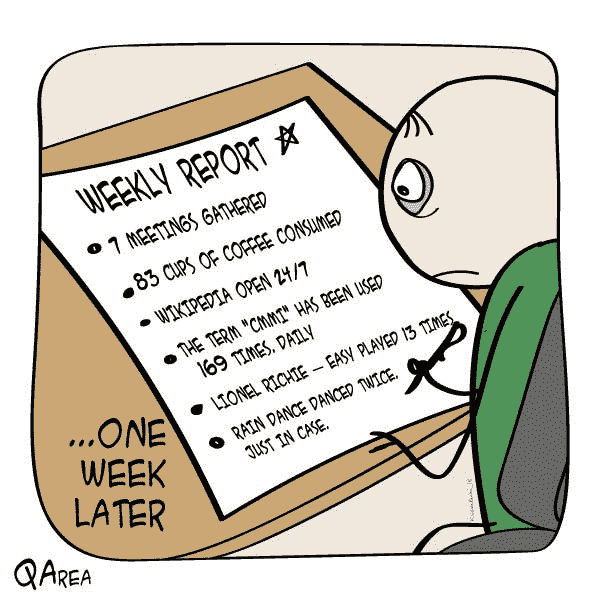 WEEKLY REPORT
7 MEETINGS GATHERED
83 CUPS OF COFFEE CONSUMED
WIKIPEDIA OPEN 24/7
THE TERM "CMMI" HAS BEEN USED
169 TIMES, DAILY
LIONEL RICHIE – EASY PLAYED 13 TIMES.
RAIN DANCE DANCED TWICE,
JUST IN CASE.
...ONE
WEEK
LATER
QAREA